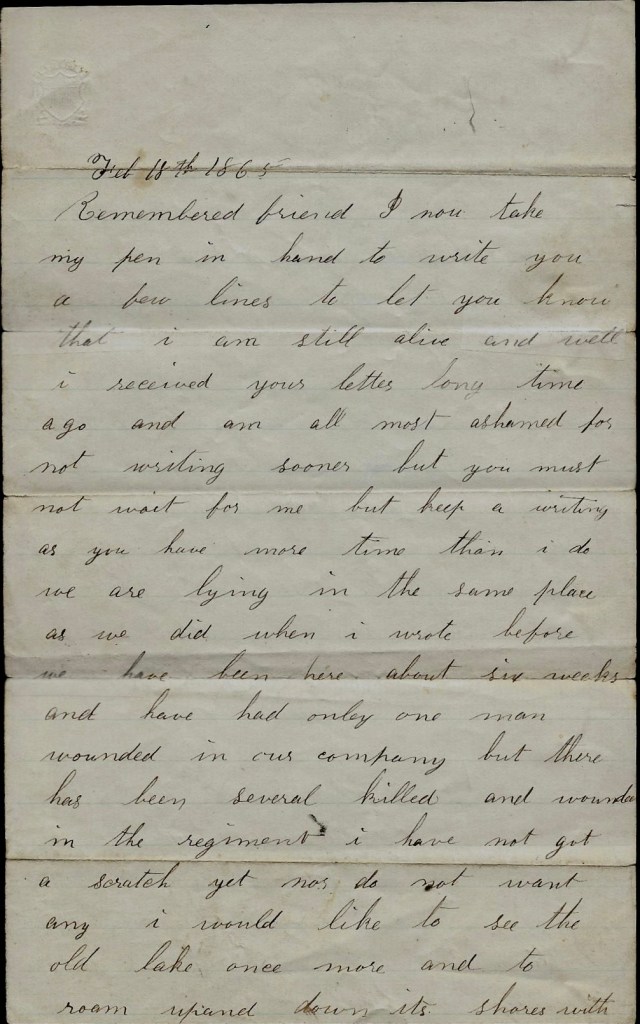 Feb 18th 1865
Remembered friend I now take
my pen in hand to write you
a few lines to let you know
that i am still alive and well
i received your letter long time
ago and am all most ashamed for
not writing sooner but you must
not wait for me but keep a writing
as you have more time than i do
we are lying in the same place
as we did when i wrote before
we have been here about six weeks
and have had only one man
wounded in our company but there
has been several killed and wounded
in the regiment i have not got
a scratch yet nor do not want
any i would like to see the
old lake once more and to
roam up and down its shores with